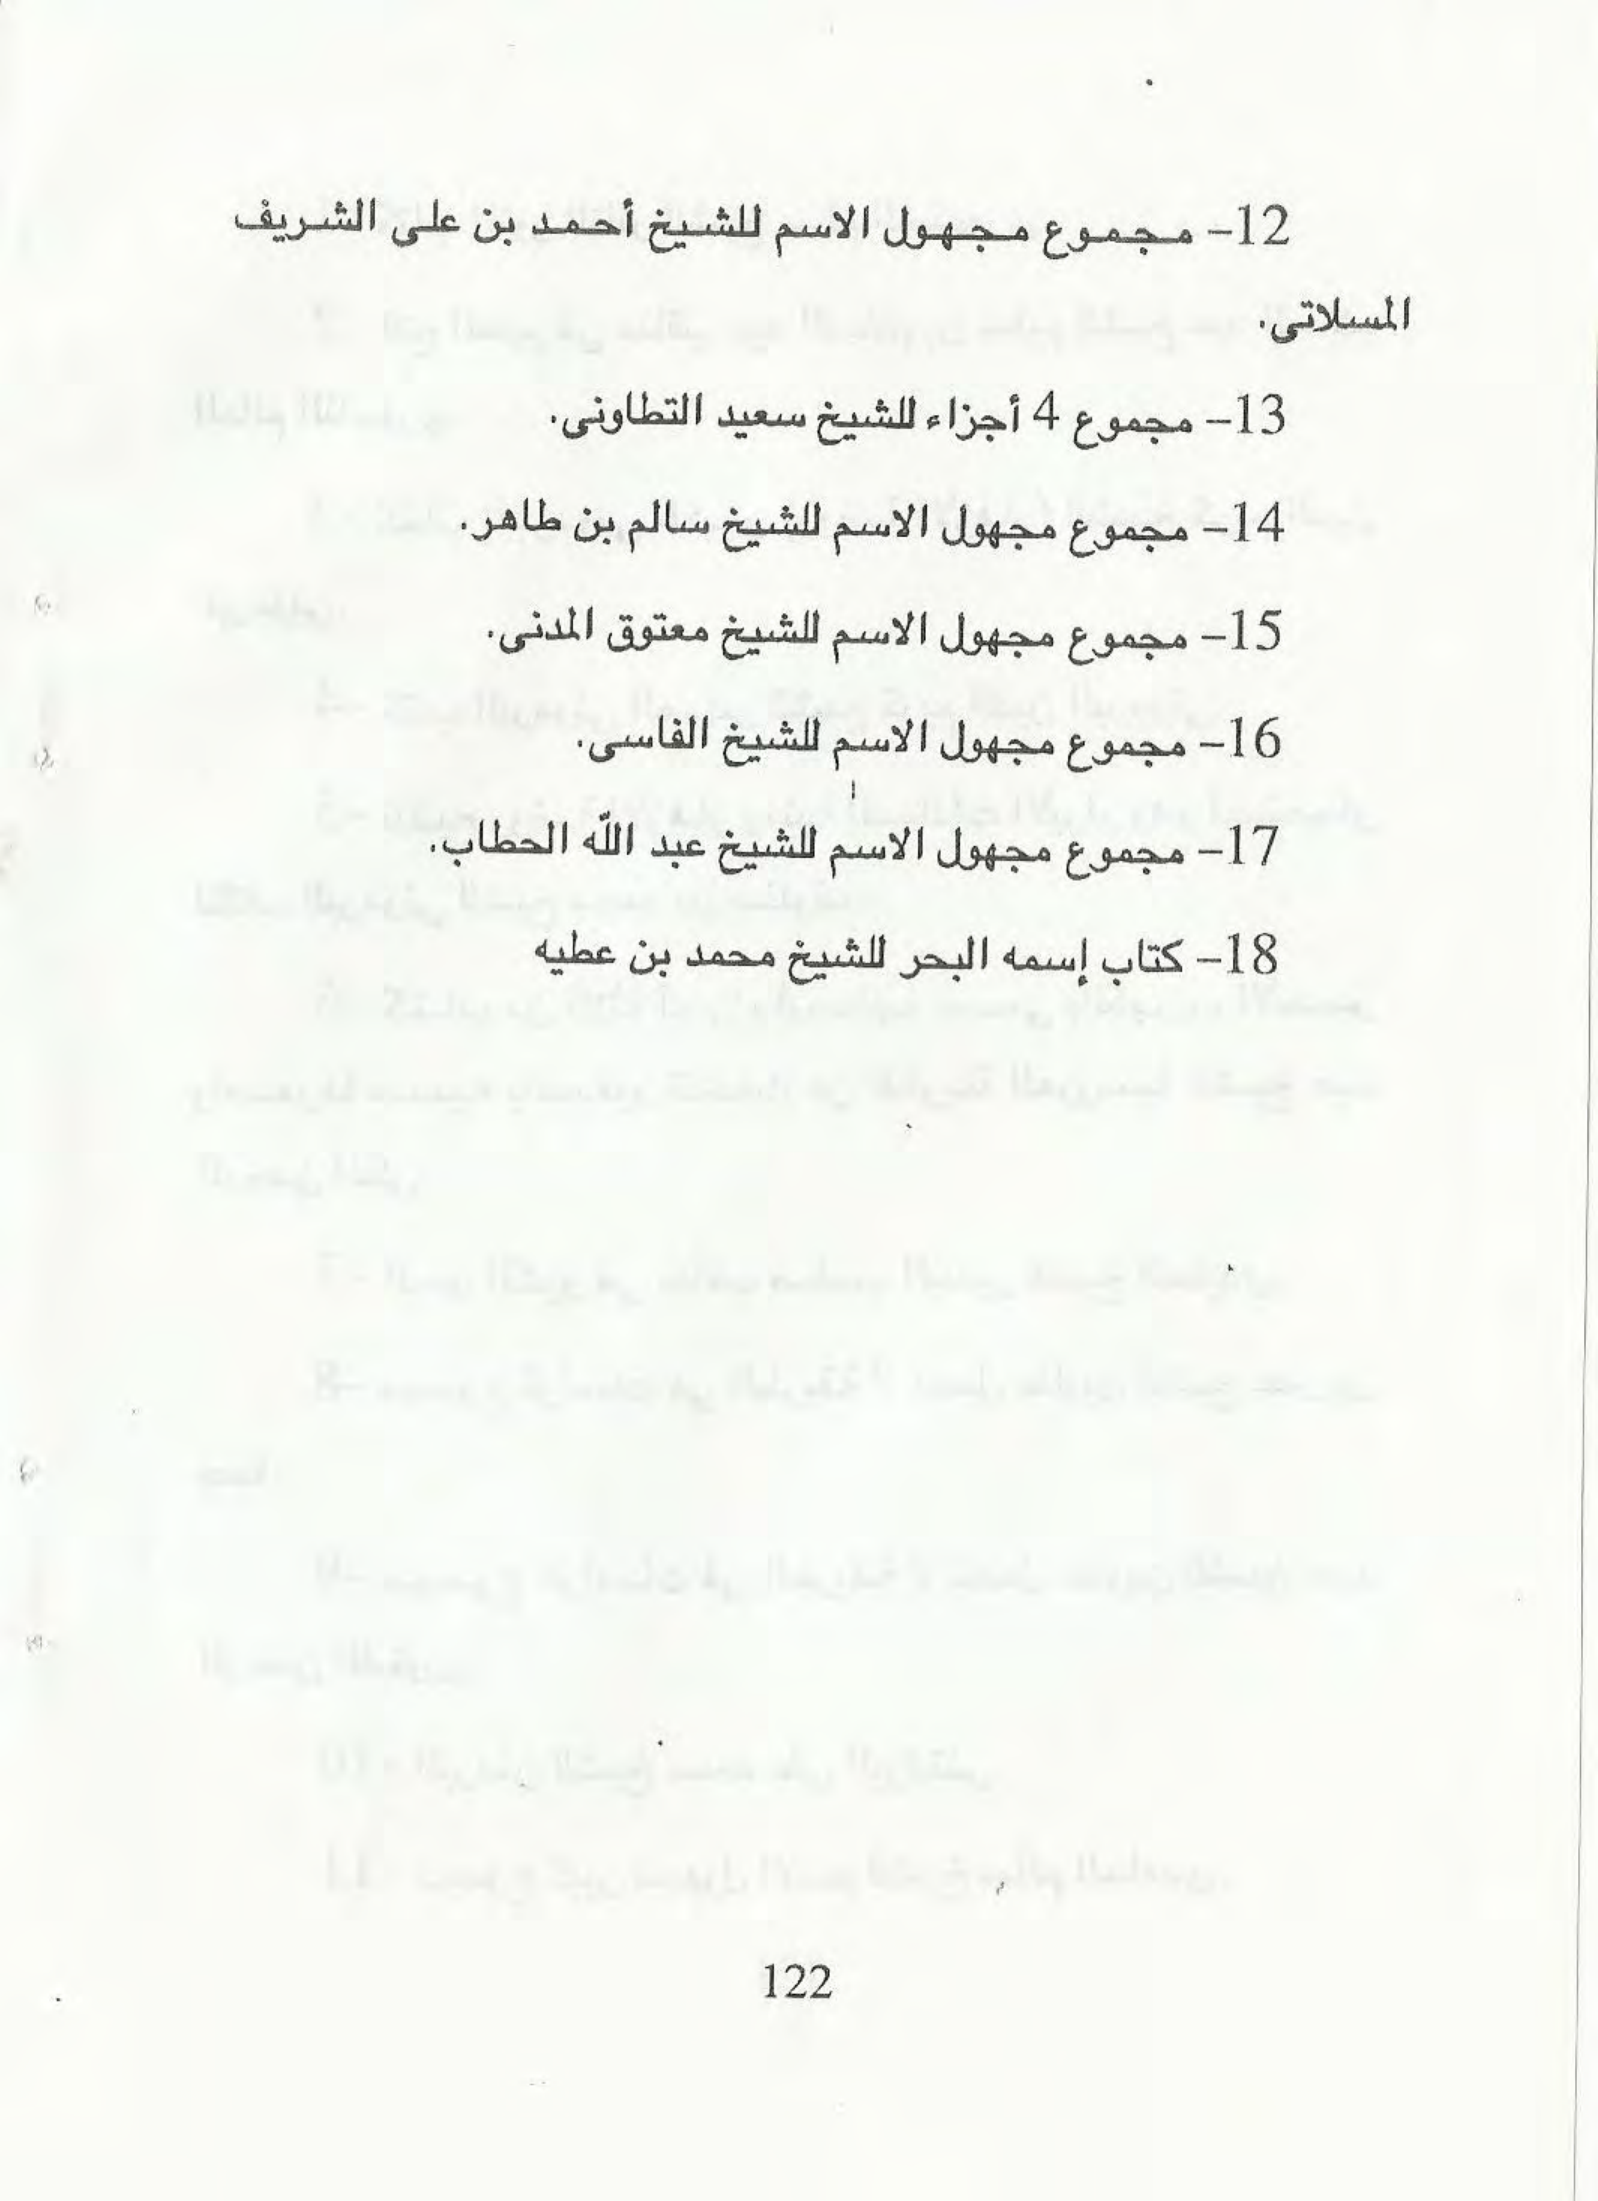 12- مجموع مجهول الاسم للشيخ أحمد بن على الشريف
المسلاتى.
13- مجموع 4 أجزاء للشيخ سعيد التطاونى.
14- مجموع مجهول الاسم للشيخ سالم بن طاهر.
15- مجموع مجهول الاسم للشيخ معتوق المدنى.
16- مجموع مجهول الاسم للشيخ الفاسى.
17- مجموع مجهول الاسم للشيخ عبد الله الحطاب.
18- كتاب إسمه البحر للشيخ محمد بن عطيه
122